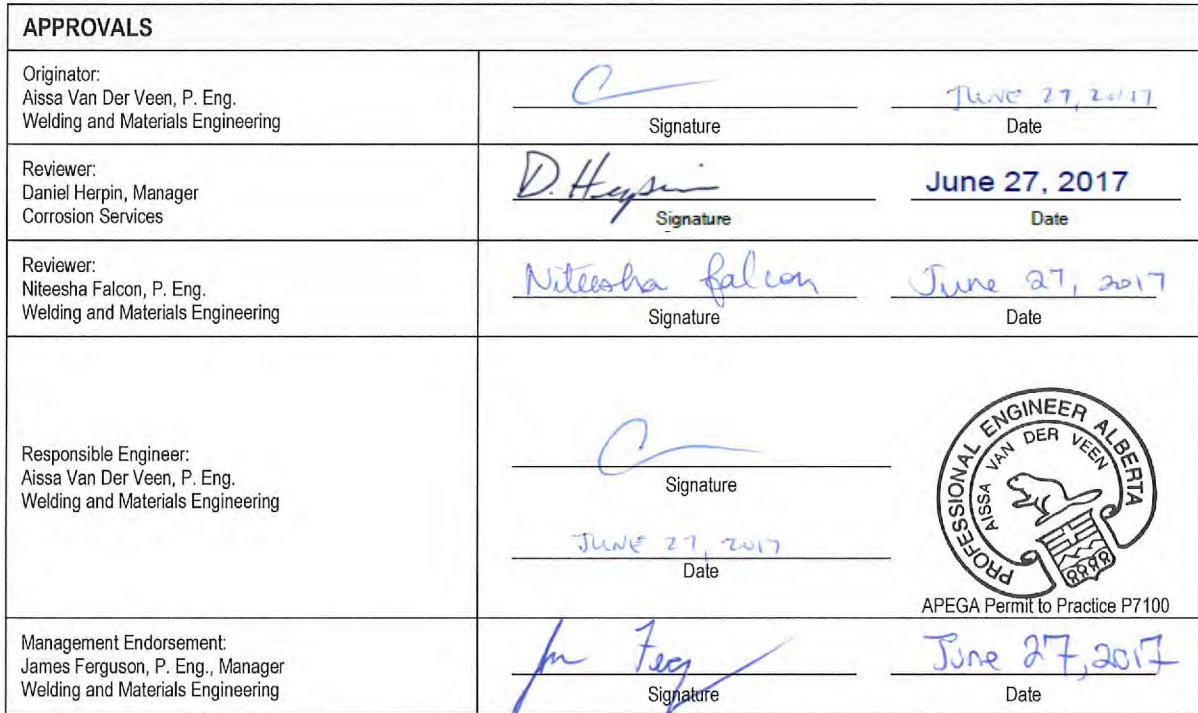 APPROVALS
Originator:
Aissa Van Der Veen, P. Eng.
Welding and Materials Engineering
JUNE 27, 2017
Signature
Date
Reviewer:
Daniel Herpin, Manager
Corrosion Services
D. Herpin
June 27, 2017
Signature
Date
Reviewer:
Niteesha Falcon, P. Eng.
Welding and Materials Engineering
Niteesha Falcon
June 27, 2017
Signature
Date
Responsible Engineer:
Aissa Van Der Veen, P. Eng.
Welding and Materials Engineering
Signature
JUNE 27, 2017
Date
PROFESSIONAL ENGINEER ALBERTA
AISSA VAN DER VEEN
APEGA Permit to Practice P7100
Management Endorsement:
James Ferguson, P. Eng., Manager
Welding and Materials Engineering
June 27, 2017
Signature
Date